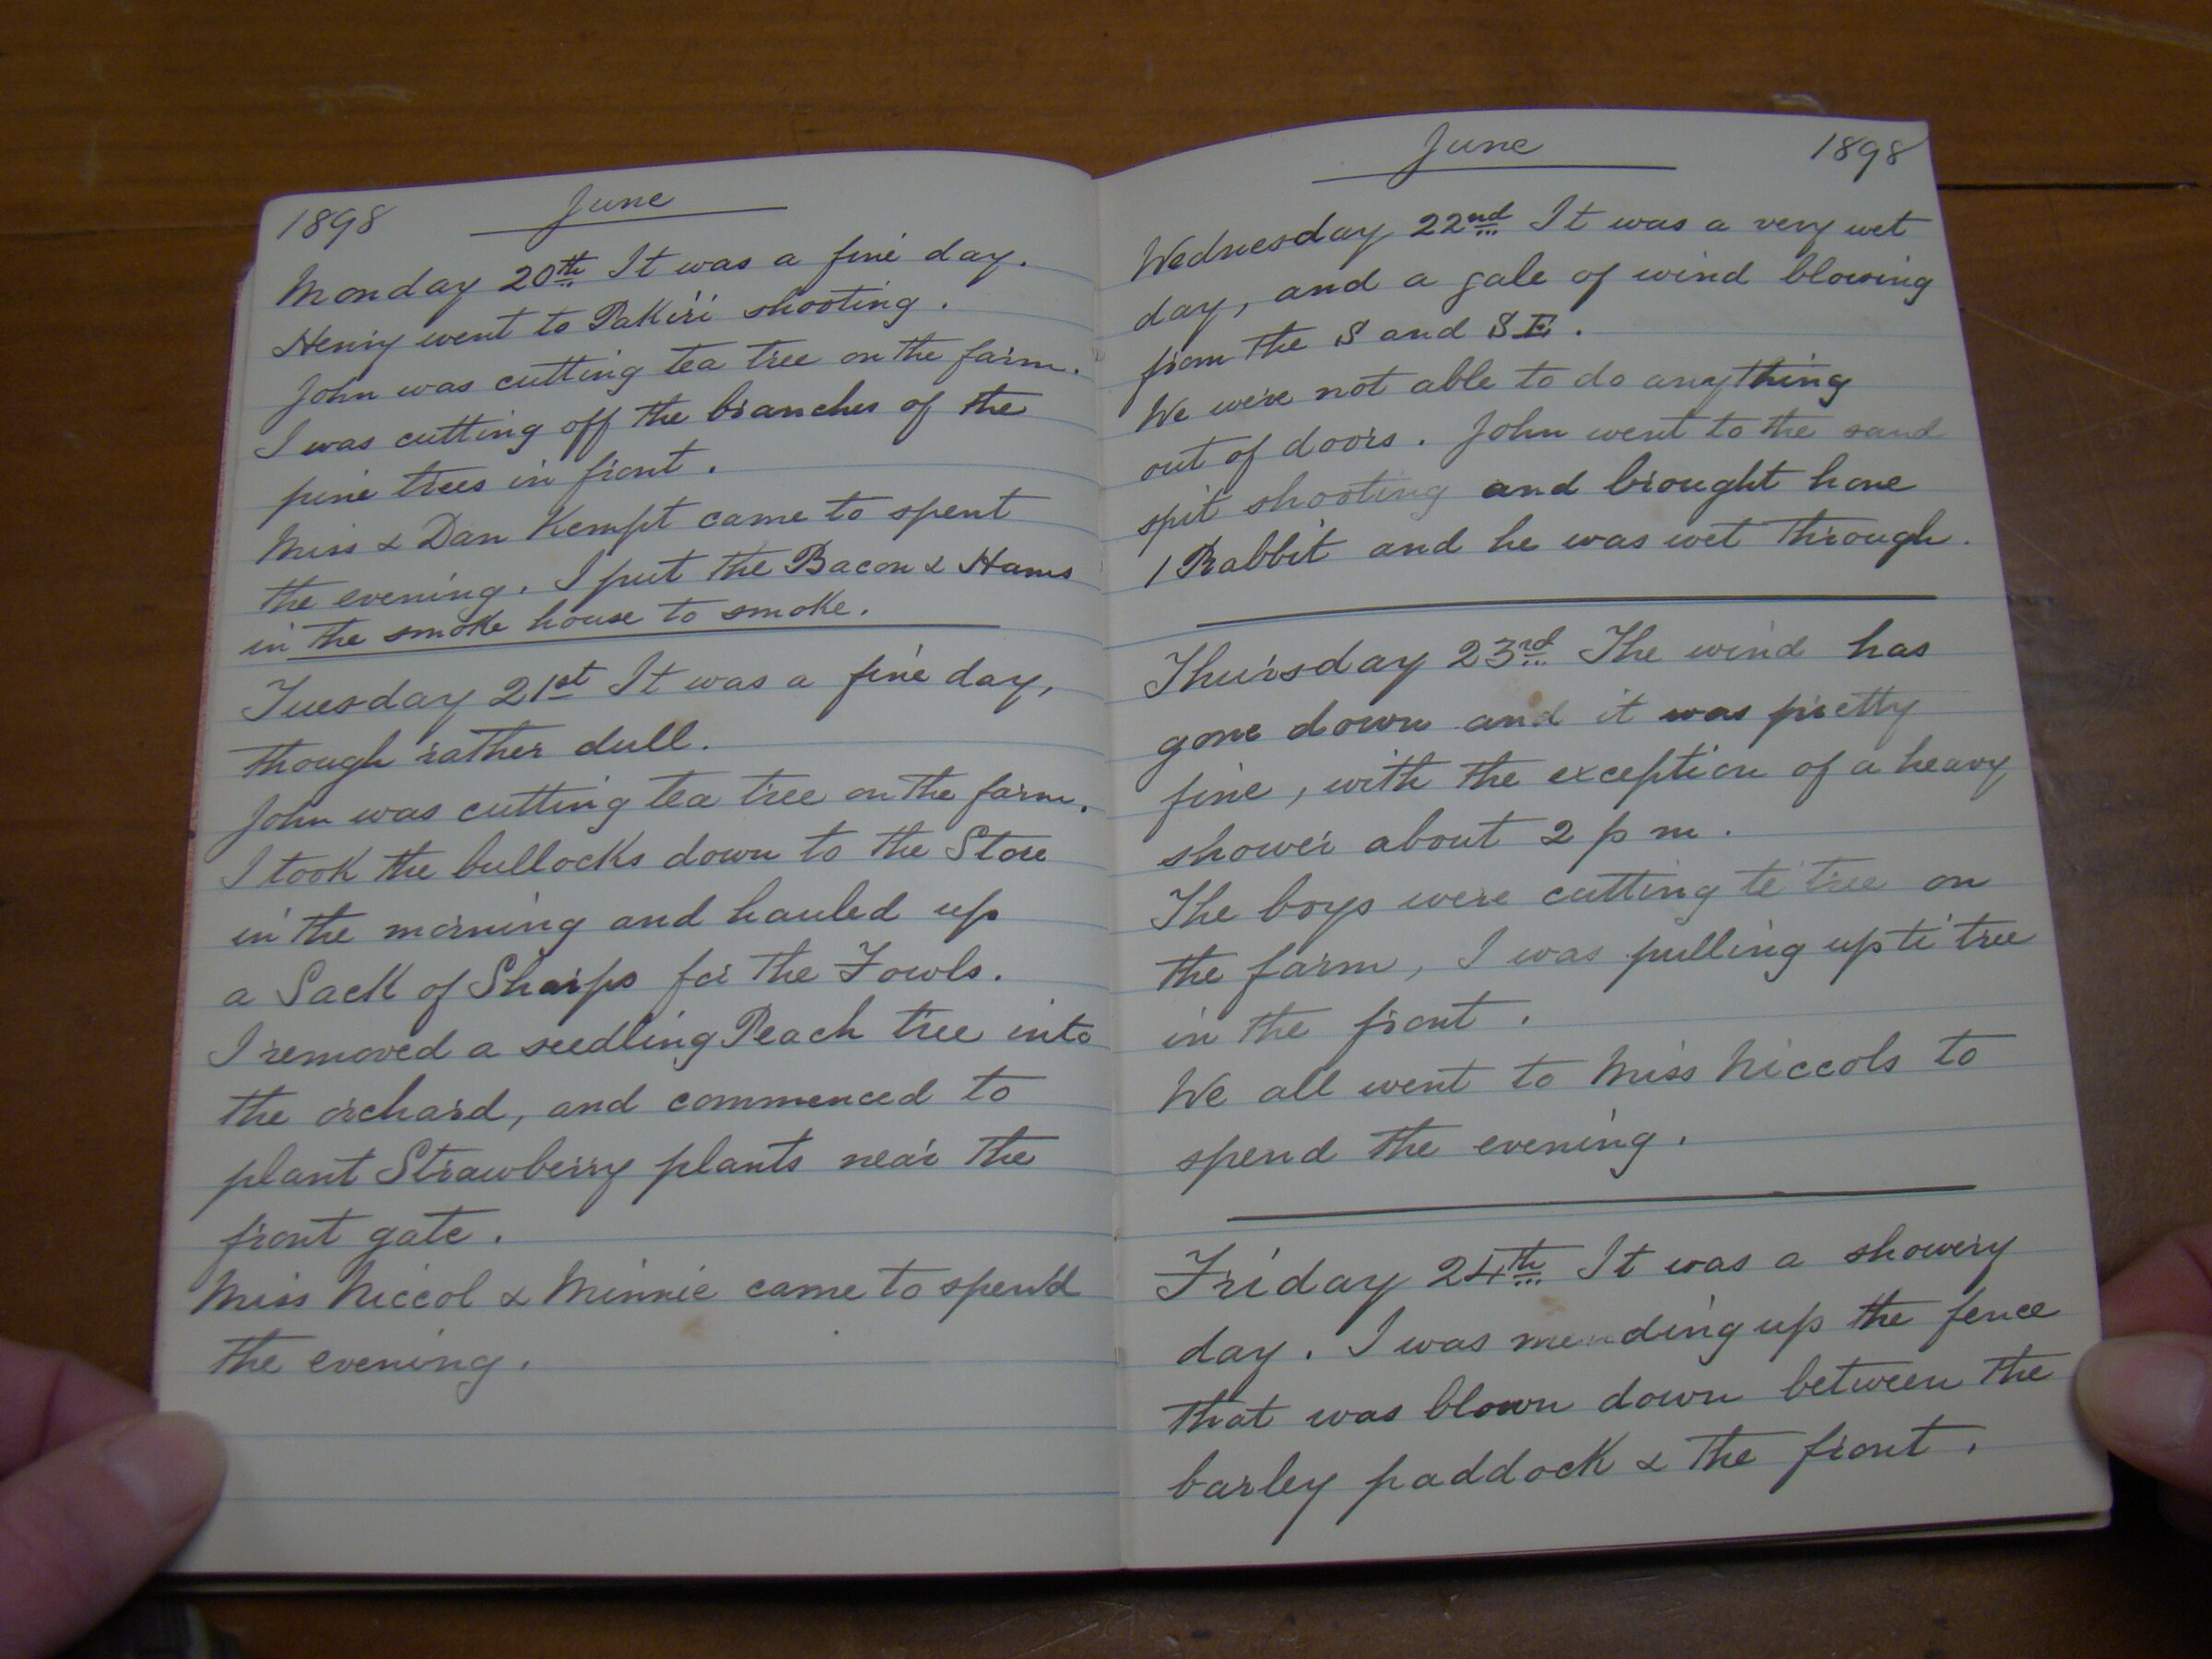 1898 June
Monday 20th It was a fine day.
Henry went to Pakiri shooting.
John was cutting tea tree on the farm.
I was cutting off the branches of the
pine trees in front.
Miss & Dan Kempt came to spent
the evening. I put the Bacon & Hams
in the smoke house to smoke.
Tuesday 21st It was a fine day,
though rather dull.
John was cutting tea tree on the farm.
I took the bullocks down to the Store
in the morning and hauled up
a Sack of Sharps for the Fowls.
I removed a seedling Peach tree into
the orchard, and commenced to
plant Strawberry plants near the
front gate.
Miss Niccol & Minnie came to spend
the evening.
June 1898
Wednesday 22nd It was a very wet
day, and a gale of wind blowing
from the S and SE.
We were not able to do anything
out of doors. John went to the sand
spit shooting and brought hone
1 Rabbit and he was wet through.
Thursday 23rd The wind has
gone down and it was pretty
fine, with the exception of a heavy
shower about 2 pm.
The boys were cutting te tree on
the farm, I was pulling up ti tree
in the front.
We all went to Miss Niccols to
spend the evening.
Friday 24th It was a showery
day. I was mending up the fence
that was blown down between the
barley paddock & the front.